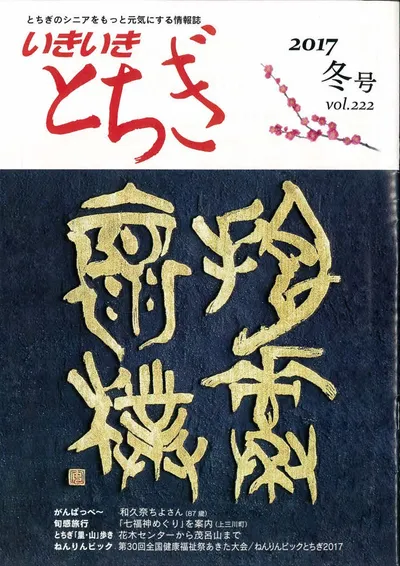 とちぎのシニアをもっと元気にする情報誌
いきいき
とちぎ
2017
冬号
vol.222
がんばっぺ〜 和久奈ちよさん(87歳)
旬感旅行 「七福神めぐり」を案内(上三川町)
とちぎ「里・山」歩き 花木センターから茂呂山まで
ねんりんピック 第30回全国健康福祉祭あきた大会/ねんりんピックとちぎ2017